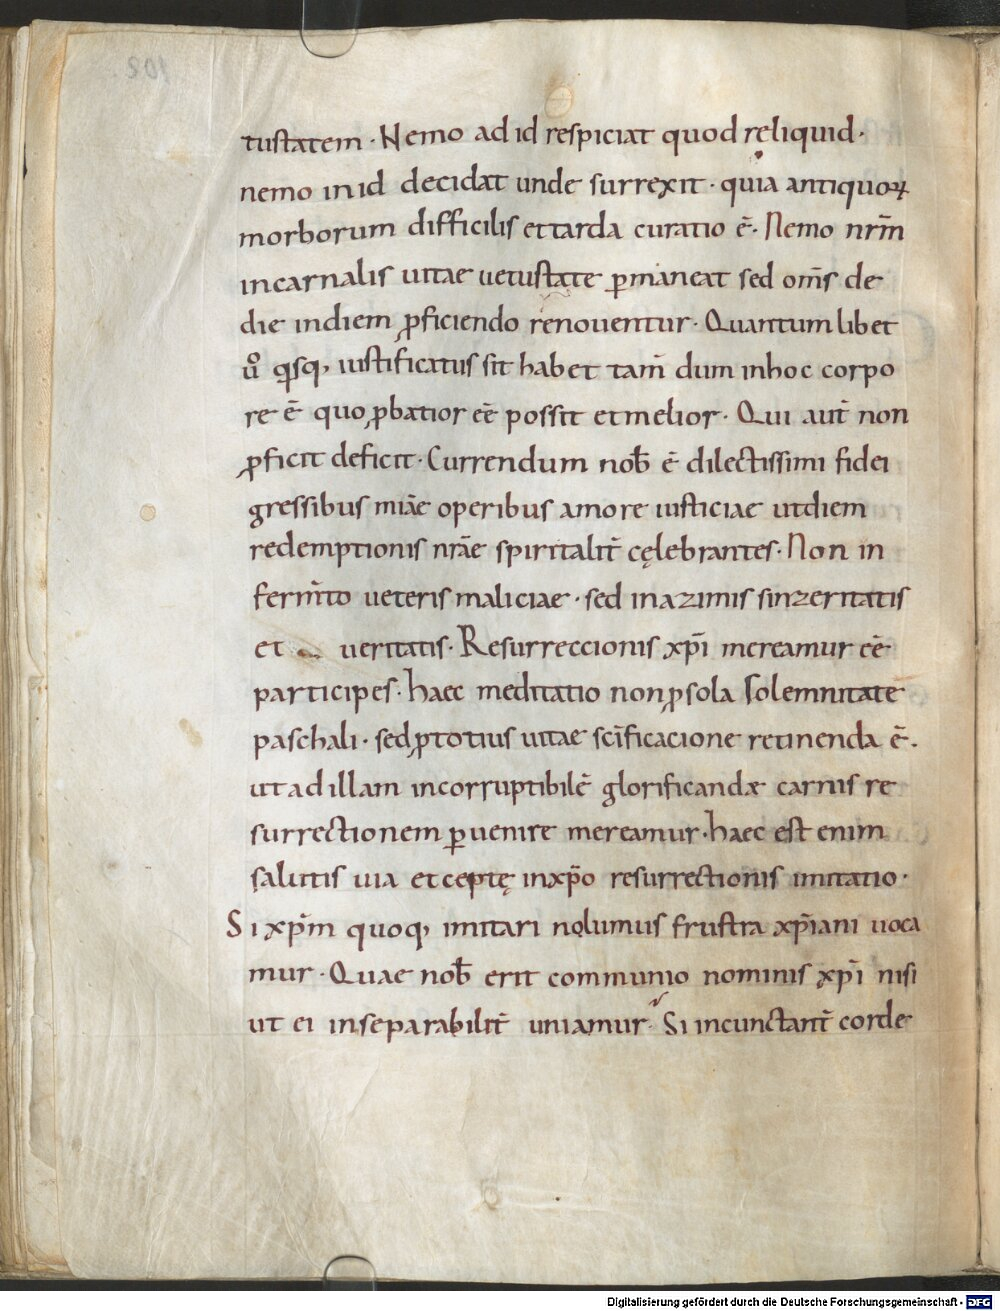 tustatem · Nemo ad id respiciat quod reliquid ·
nemo in id decidat unde surrexit · quia antiquoꝝ
morborum difficilis et tarda curatio ē · Nemo nr̄m
in carnalis uitae uetustate ꝑmaneat sed om̄s de
die in diem ꝓficiendo renouentur · Quantum libet
ū qisq, iustificatus sit habet tam̄ dum in hoc corpo
re ē quo ꝓbatior eē possit et melior · Qui aut̄ non
ꝓficit deficit · Currendum nob̄ ē dilectissimi fidei
gressibus miāe operibus amore iusticiae ut diem
redemptionis nrāe spiritalit̄ cęlebrantes · Non in
ferm̄to ueteris maliciae · sed in azimis sinzeritatis
et ueritatis · Resurreccionis xp̄i mereamur eē
participes · haec meditatio non ꝓ sola solemnitate
paschali · sed ꝓ totius uitae sc̄ificacione retinenda ē ·
ut ad illam incorruptibilē glorificandæ carnis re
surrectionem ꝑuenire mereamur · haec est enim
salutis uia et ceptę in xp̄o resurrectionis imitatio ·
Si xp̄m quoq, imitari nolumus frustra xp̄iani uoca
mur · Quae nob̄ erit communio nominis xp̄i nisi
ut ei inseparabilit̄ uniamur · Si incunctant̄ corde
108
Digitalisierung gefördert durch die Deutsche Forschungsgemeinschaft - DFG